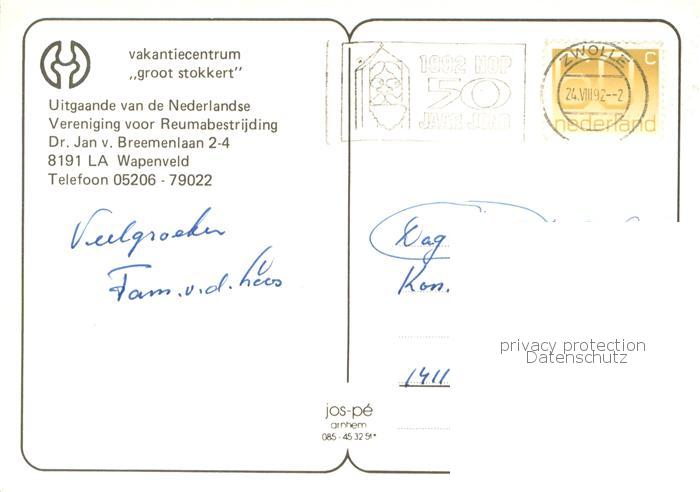 vakantiecentrum
„groot stokkert”
Uitgaande van de Nederlandse
Vereniging voor Reumabestrijding
Dr. Jan v. Breemenlaan 2-4
8191 LA Wapenveld
Telefoon 05206 - 79022
Veelgroeten
Fam. v.d.
50
ZWOLLE
24.VIII92.--2
C
nederland
Dag
Kon.
1411
privacy protection
Datenschutz
jos-pé
arnhem
085 - 45 32 51*